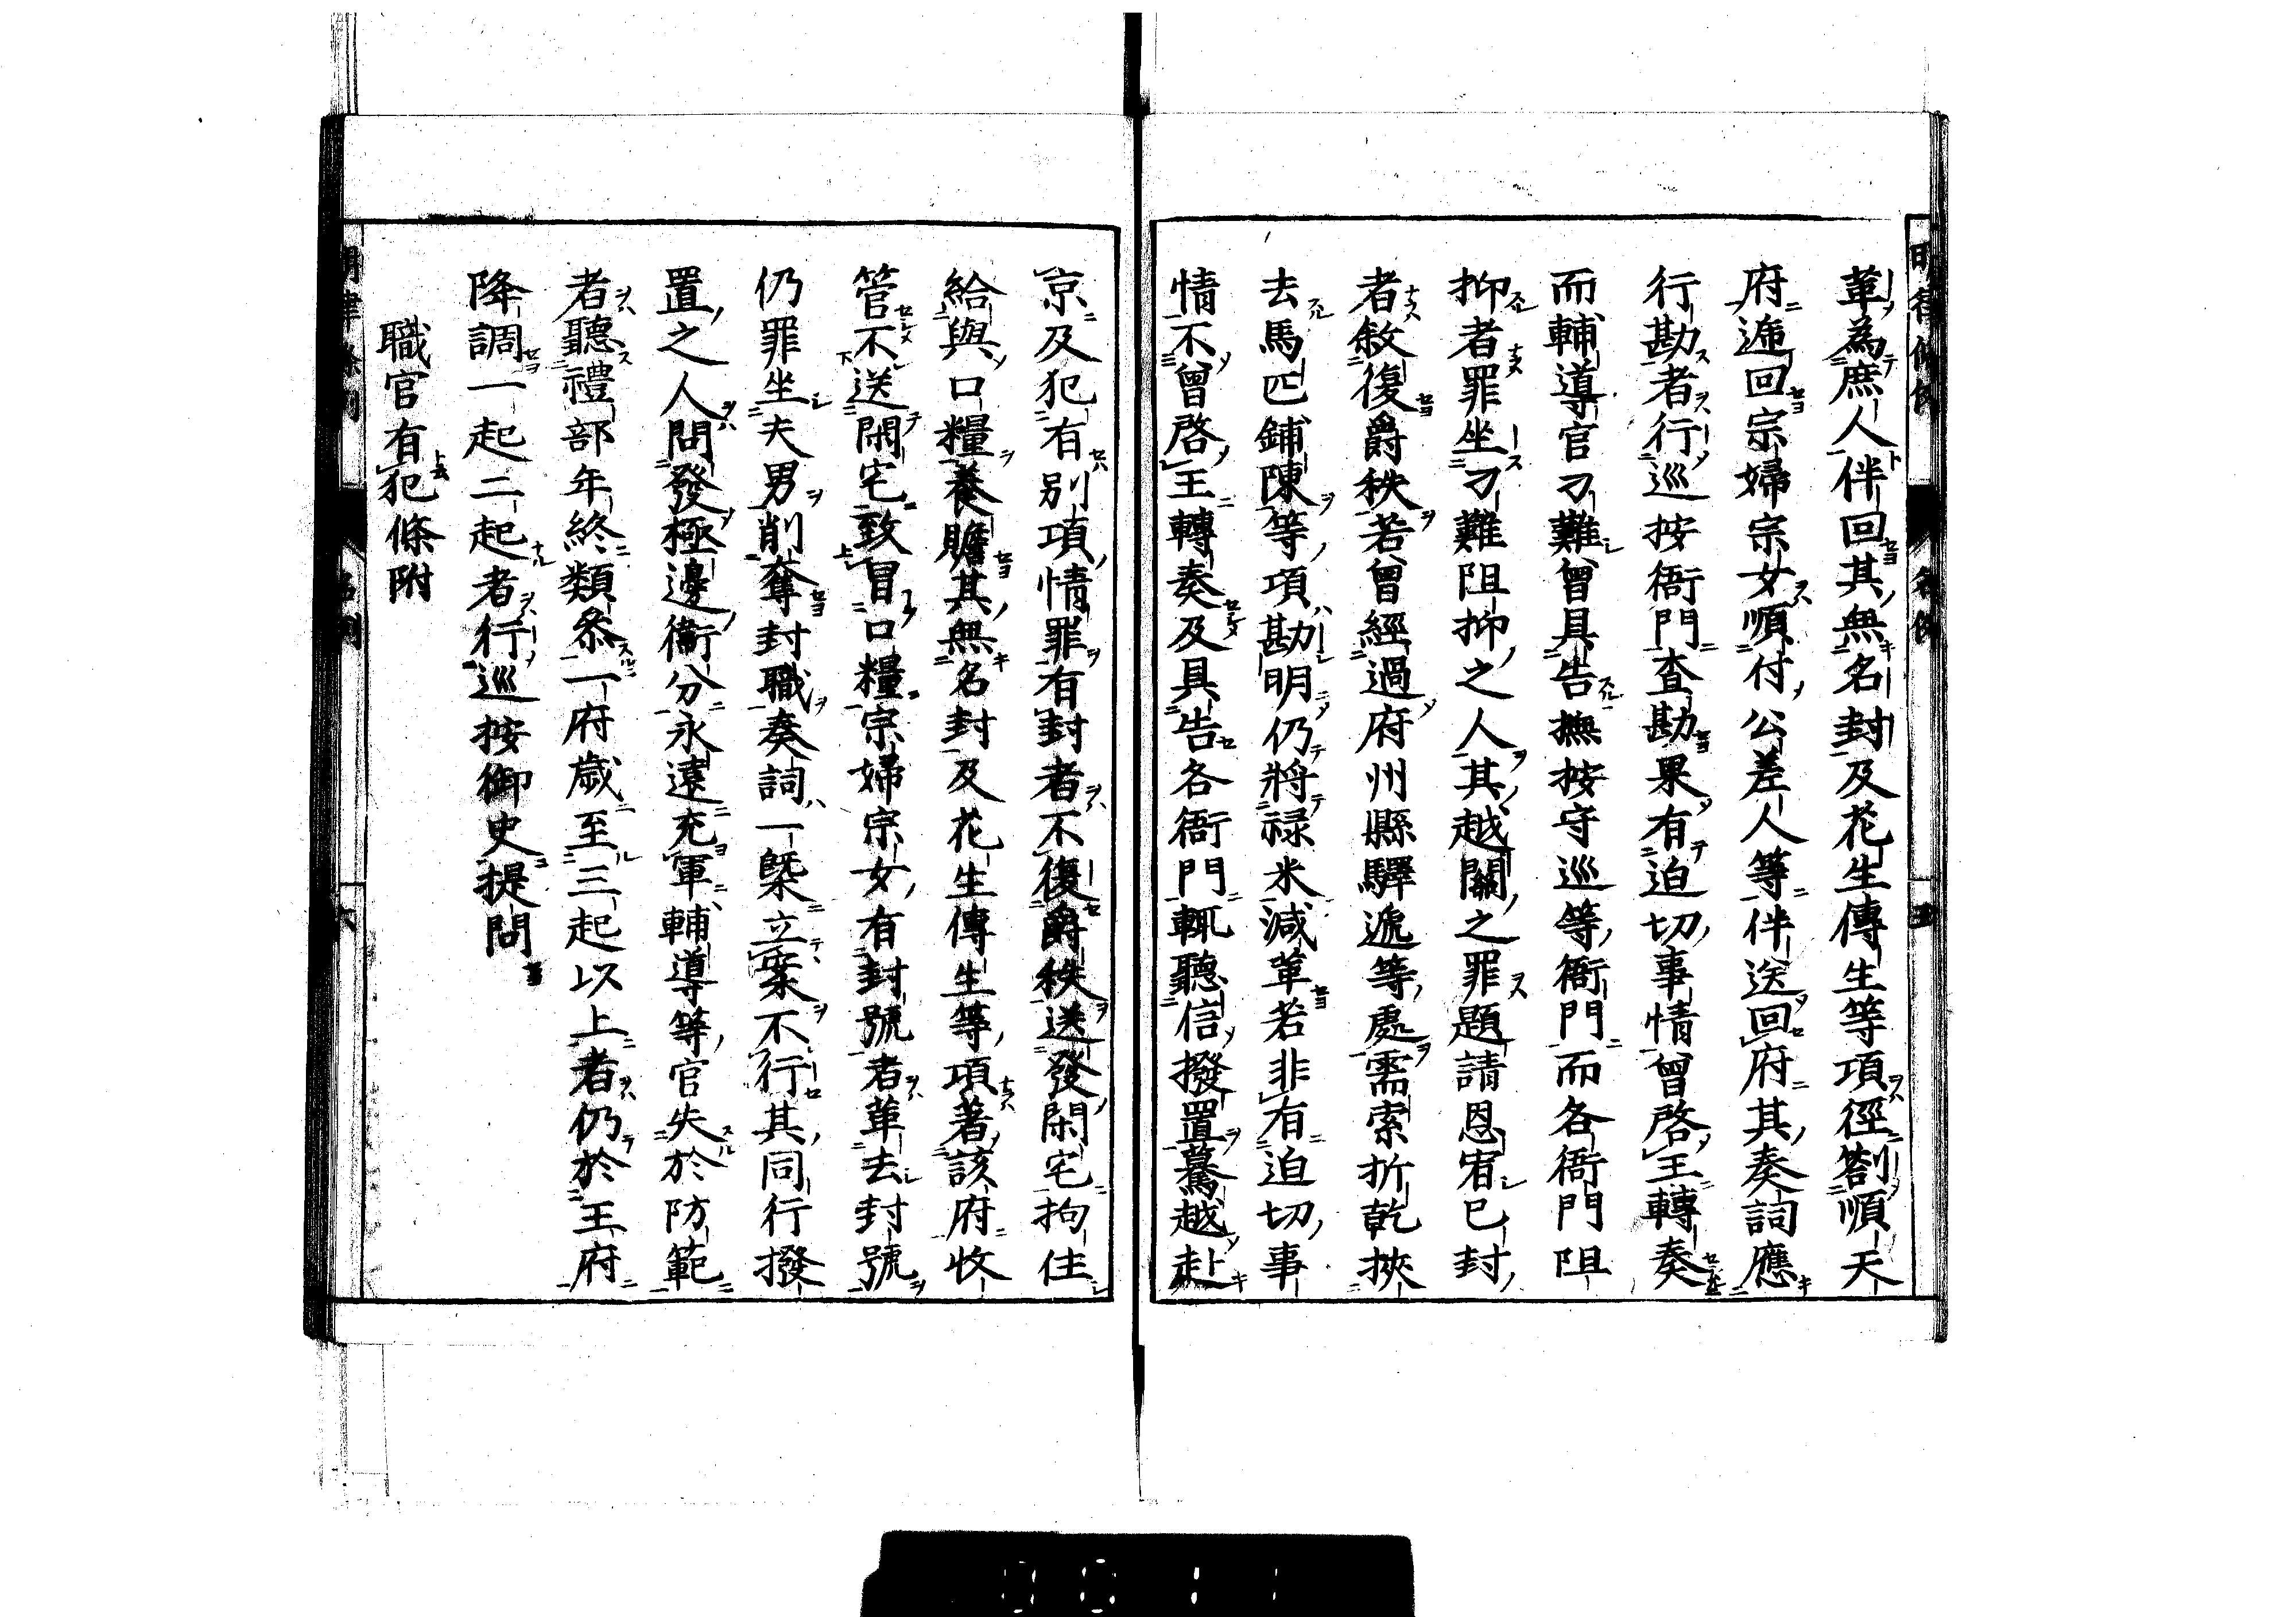 革為庶人伴回其無名封及花生傳生等項徑劄順天
府遞回宗婦宗女順付公差人等伴送回府其奏詞應
行勘者行巡按衙門查勘果有迫切事情曾啓王轉奏
而輔導官刁難曾具告撫按守巡等衙門而各衙門阻
抑者罪坐刁難阻抑之人其越關之罪題請恩宥已封
者敘復爵秩若曾經過府州縣驛遞等處需索折乾挾
去馬匹鋪陳等項勘明仍將祿米減革若非有迫切事
情不曾啓王轉奏及具告各衙門輒聽信撥置驀越赴
京及犯有別項情罪有封者不復爵秩送發閑宅拘住
給與口糧養贍其無名封及花生傳生等項著該府收
管不送閑宅致冒口糧宗婦宗女有封號者革去封號
仍罪坐夫男削奪封職奏詞一槩立案不行其同行撥
置之人問發極邊衛分永遠充軍輔導等官失於防範
者聽禮部年終類叅一府歲至三起以上者仍於王府
降調一起二起者行巡按御史提問
職官有犯條附